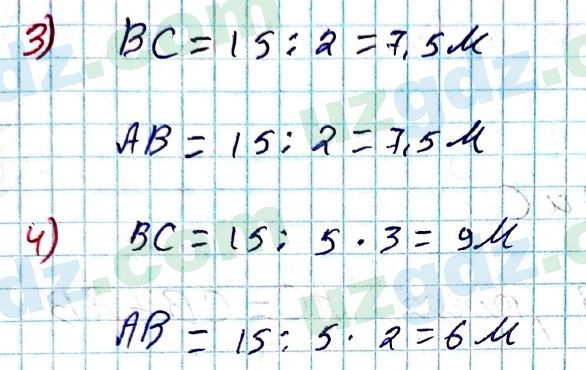 3) BC = 15 : 2 = 7,5 м
AB = 15 : 2 = 7,5 м
4) BC = 15 : 5 · 3 = 9 м
AB = 15 : 5 · 2 = 6 м
uzgdz.com